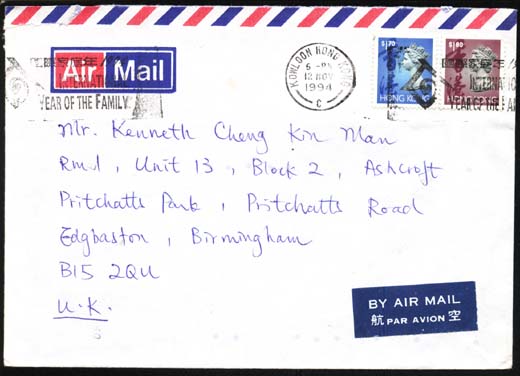 Air Mail
國際家庭年
INTERNATIONAL
YEAR OF THE FAMILY
KOWLOON HONG KONG
5 - PM
12 NOV
1994
C
$1.70
香港
HONG KONG
香港
YEAR OF THE FA
Mr. Kenneth Cheng Kin Man
Rm.1, Unit 13, Block 2, Ashcroft
Pritchatts Park, Pritchatts Road
Edgbaston, Birmingham
B15 2QU
U.K.
BY AIR MAIL
航 PAR AVION 空